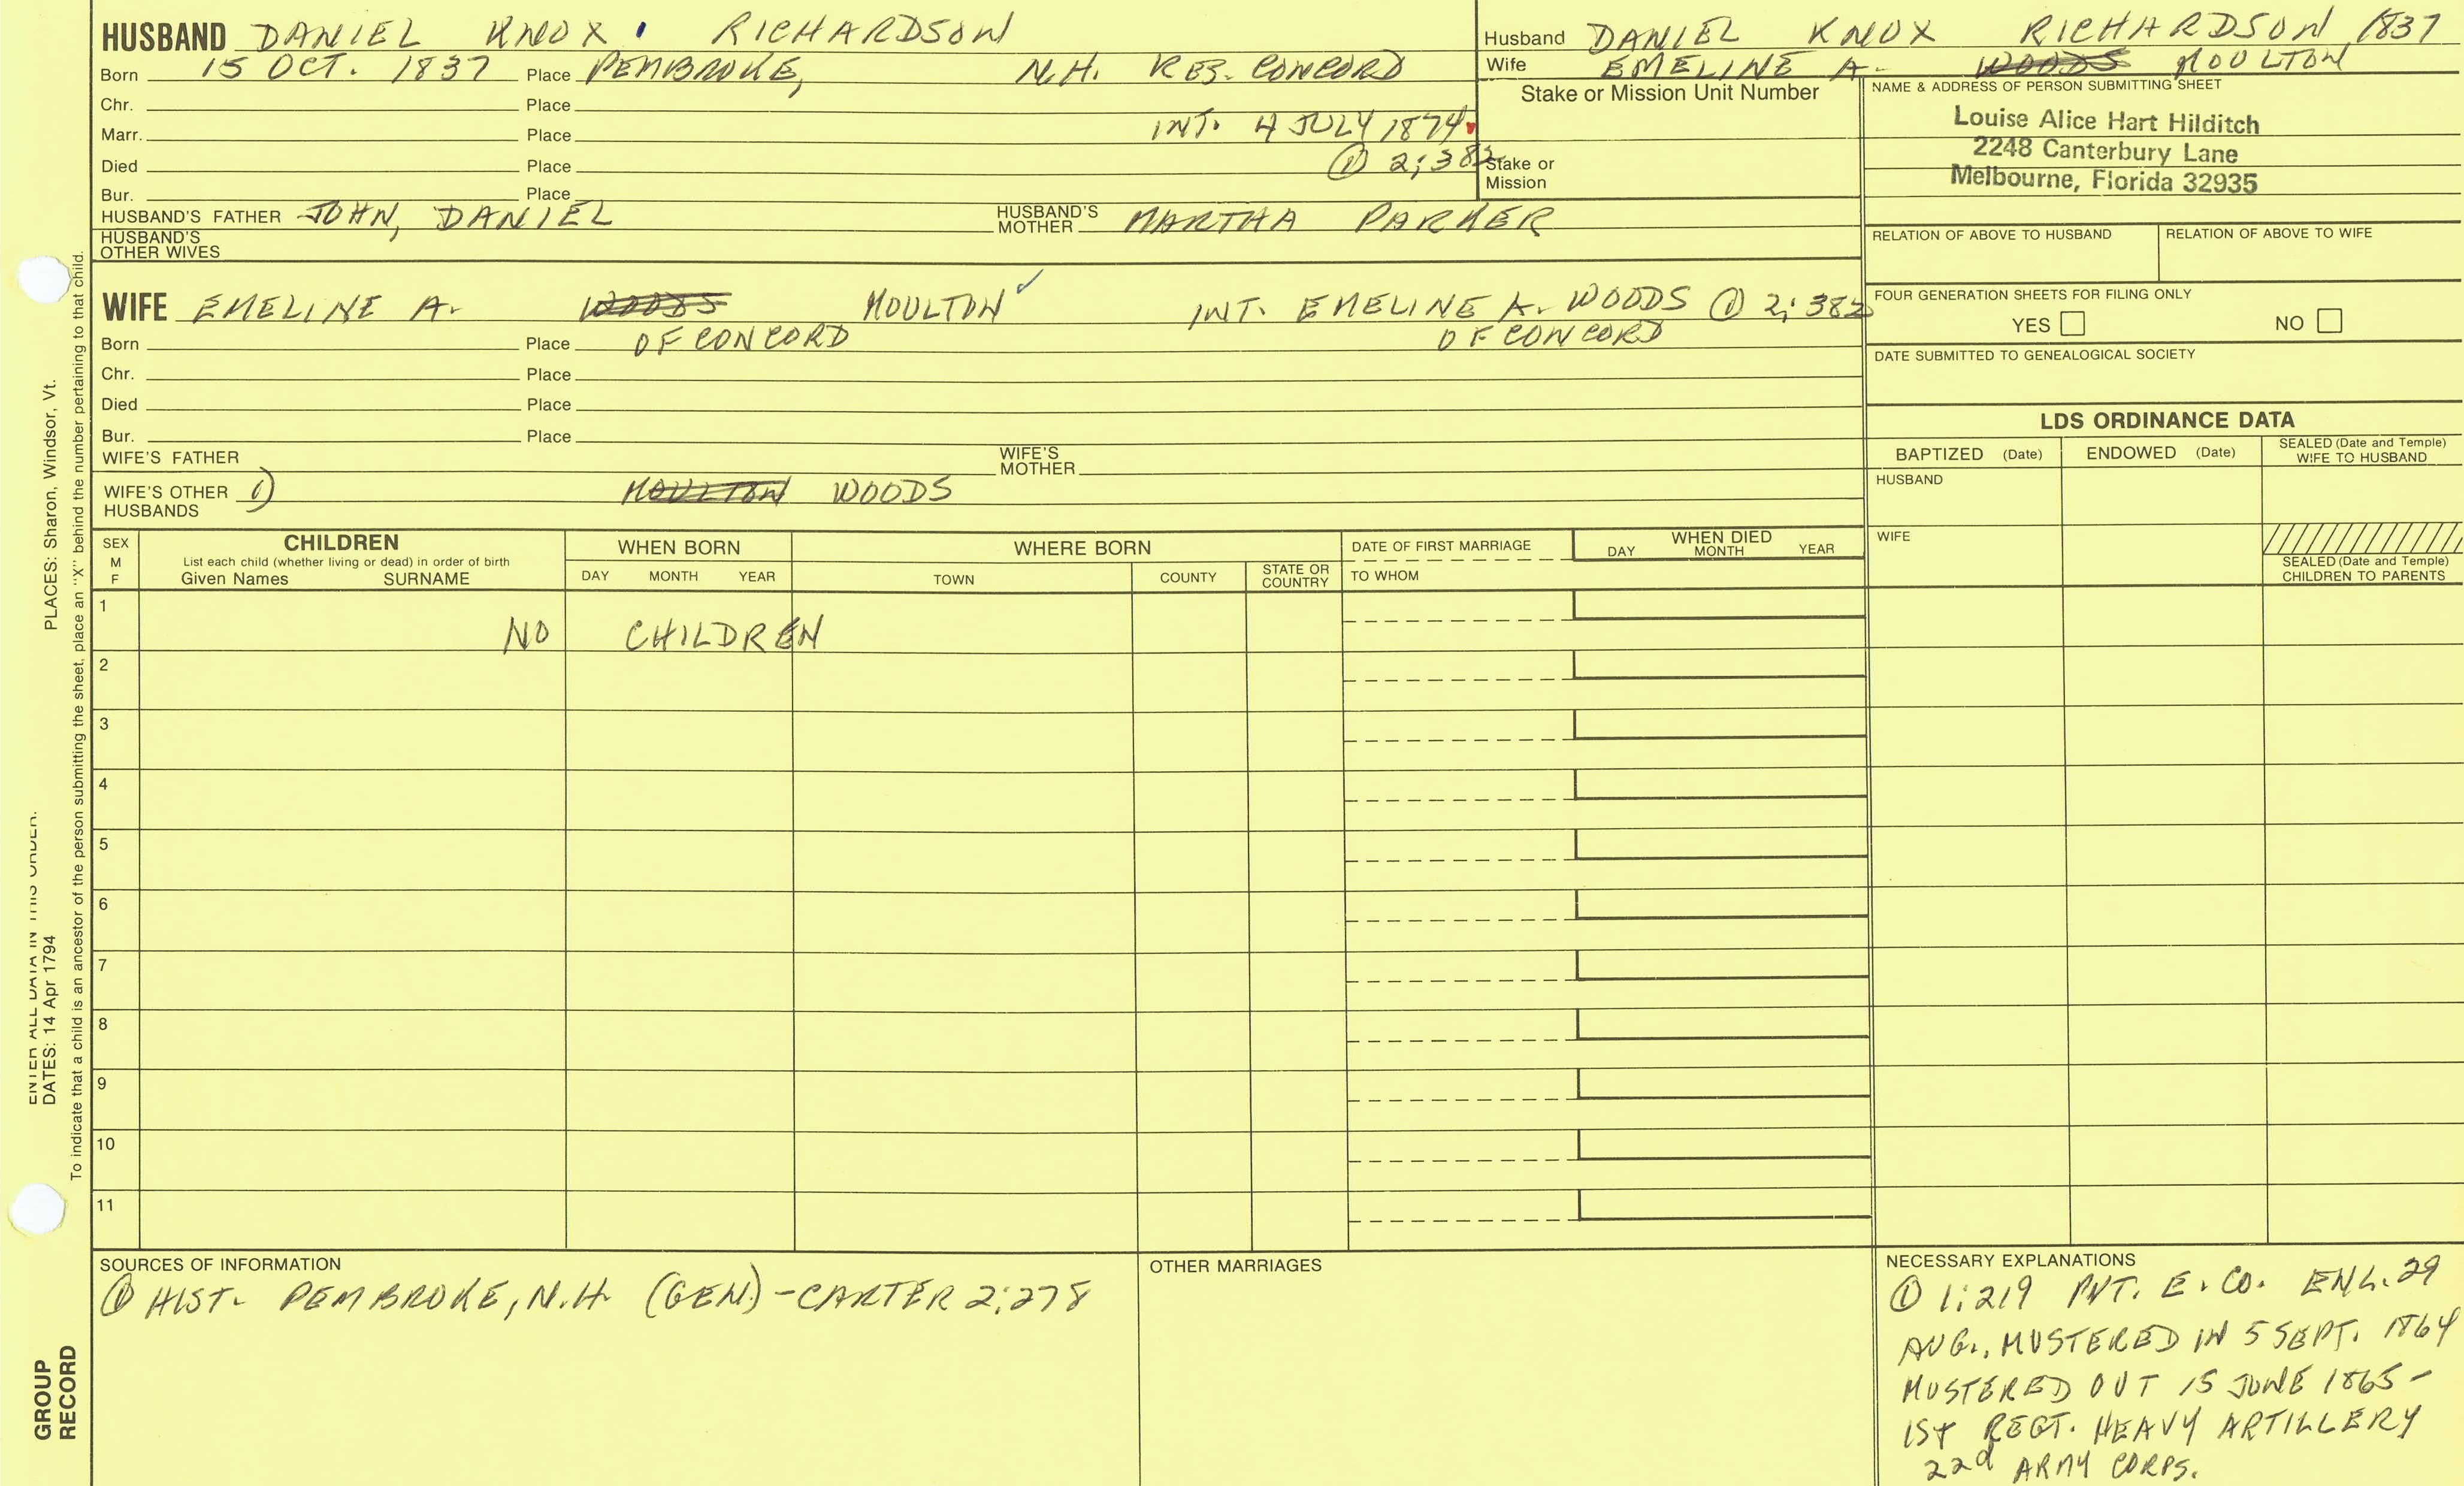 HUSBAND DANIEL KNOX RICHARDSON
Born 15 OCT. 1837 Place PEMBROKE, N.H. RES. CONCORD
Chr. Place
Marr. Place INT. 4 JULY 1874
Died Place ① 2:382
Bur. Place
HUSBAND'S FATHER JOHN, DANIEL HUSBAND'S MOTHER MARTHA PARKER
HUSBAND'S OTHER WIVES
Husband DANIEL KNOX RICHARDSON 1837
Wife EMELINE A. WOODS MOULTON
Stake or Mission Unit Number
Stake or Mission
NAME & ADDRESS OF PERSON SUBMITTING SHEET
Louise Alice Hart Hilditch
2248 Canterbury Lane
Melbourne, Florida 32935
RELATION OF ABOVE TO HUSBAND RELATION OF ABOVE TO WIFE
FOUR GENERATION SHEETS FOR FILING ONLY
YES NO
DATE SUBMITTED TO GENEALOGICAL SOCIETY
WIFE EMELINE A. WOODS MOULTON INT. EMELINE A. WOODS ① 2:382
Born Place OF CONCORD OF CONCORD
Chr. Place
Died Place
Bur. Place
WIFE'S FATHER WIFE'S MOTHER
WIFE'S OTHER HUSBANDS 1) MOULTON WOODS
LDS ORDINANCE DATA
BAPTIZED (Date) ENDOWED (Date) SEALED (Date and Temple) WIFE TO HUSBAND
HUSBAND
WIFE
SEALED (Date and Temple) CHILDREN TO PARENTS
SEX M F
CHILDREN
List each child (whether living or dead) in order of birth
Given Names SURNAME
WHEN BORN
DAY MONTH YEAR
WHERE BORN
TOWN COUNTY STATE OR COUNTRY
DATE OF FIRST MARRIAGE
TO WHOM
WHEN DIED
DAY MONTH YEAR
1
NO CHILDREN
2
3
4
5
6
7
8
9
10
11
SOURCES OF INFORMATION
① HIST. PEMBROKE, N.H. (GEN) - CARTER 2:278
OTHER MARRIAGES
NECESSARY EXPLANATIONS
① 1:219 PVT. E. CO. ENL. 29
AUG., MUSTERED IN 5 SEPT. 1864
MUSTERED OUT 15 JUNE 1865 -
1ST REGT. HEAVY ARTILLERY
22d ARMY CORPS.
ENTER ALL DATA IN THIS ORDER:
DATES: 14 Apr 1794 PLACES: Sharon, Windsor, Vt.
To indicate that a child is an ancestor of the person submitting the sheet, place an "X" behind the number pertaining to that child.
GROUP
RECORD